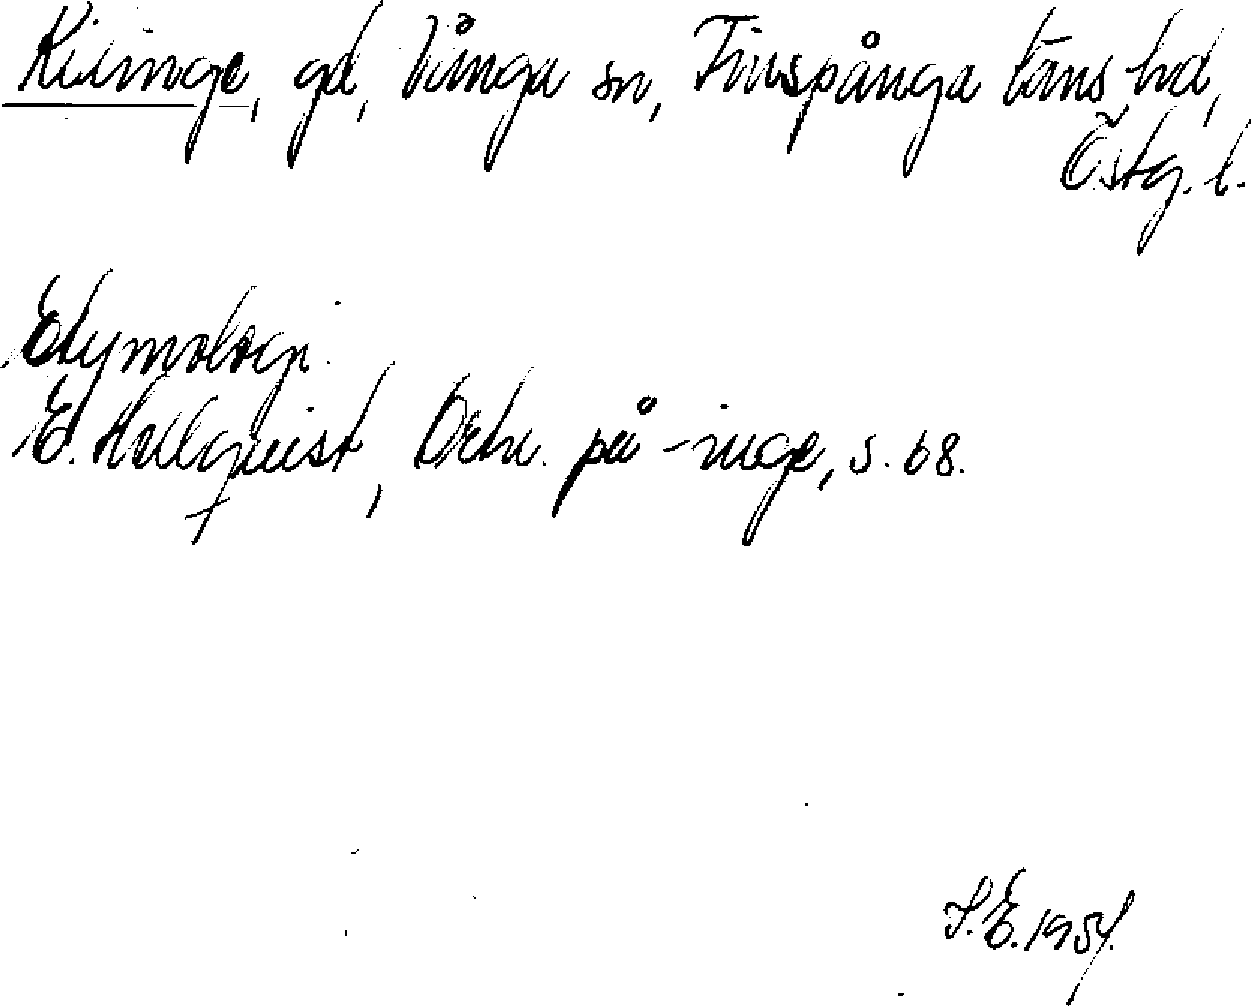 Kivinge, gd, Vånga sn, Finspånga läns hd,
Östg. l.
Etymologi.
E. Hellquist, Ortn. på -inge, s. 68.
S.E. 1954.